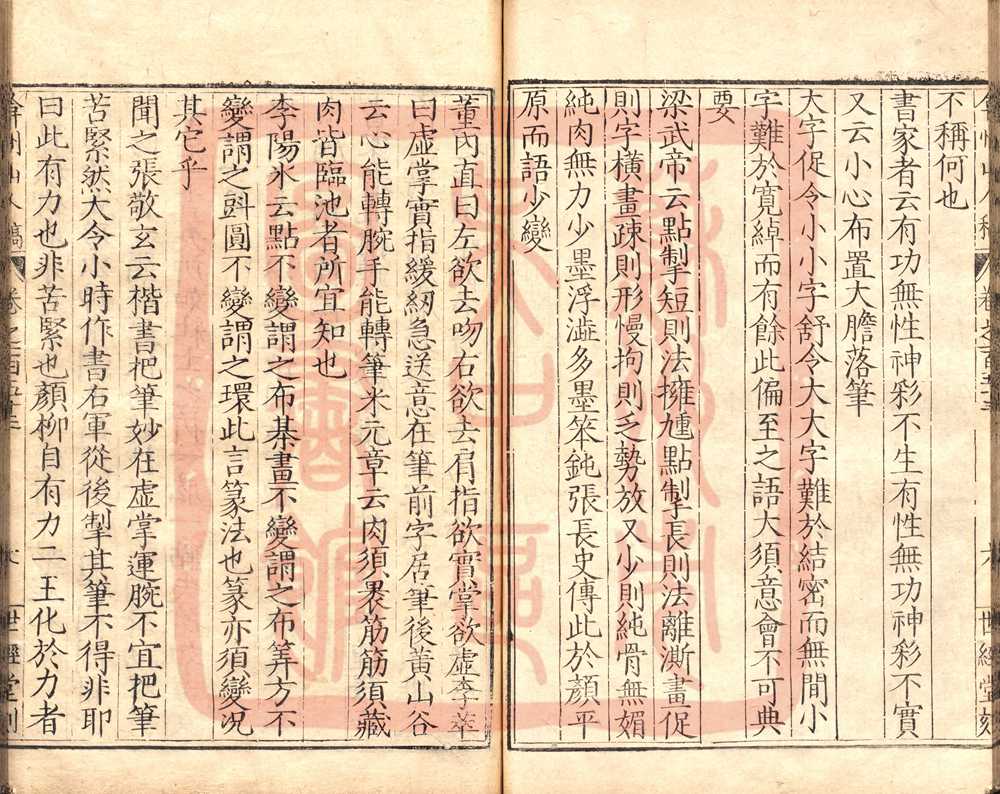 不稱何也
書家者云有功無性神彩不生有性無功神彩不實
又云小心布置大膽落筆
大字促令小小字舒令大大字難於結密而無間小
字難於寬綽而有餘此偏至之語大須意會不可典
要
梁武帝云點掣短則法擁尰點掣長則法離澌畫促
則字橫畫疎則形慢拘則乏勢放又少則純骨無媚
純肉無力少墨浮澁多墨笨鈍張長史傳此於顏平
原而語少變
董內直曰左欲去吻右欲去肩指欲實掌欲虛李萃
曰虛掌實指緩紉急送意在筆前字居筆後黃山谷
云心能轉腕手能轉筆米元章云肉須褁筋筋須藏
肉皆臨池者所宜知也
李陽氷云點不變謂之布棊畫不變謂之布筭方不
變謂之㪷圓不變謂之環此言篆法也篆亦須變况
其它乎
聞之張敬玄云楷書把筆妙在虛掌運腕不宜把筆
苦緊然大令小時作書右軍從後掣其筆不得非耶
曰此有力也非苦緊也顏柳自有力二王化於力者
弇州山人稿 卷之百五十三
世經堂刻